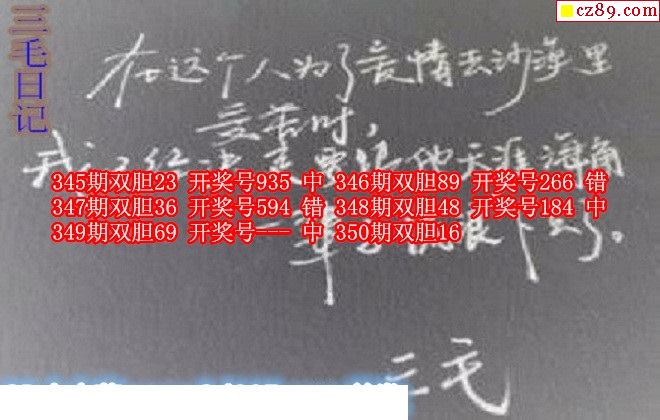 cz89.com
三毛日记
在这个人为了爱情去沙漠里
受苦时,
我 决定要跟他天涯海角
345期双胆23 开奖号935 中 346期双胆89 开奖号266 错
347期双胆36 开奖号594 错 348期双胆48 开奖号184 中
349期双胆69 开奖号--- 中 350期双胆16
一辈子流浪下去了。
三毛